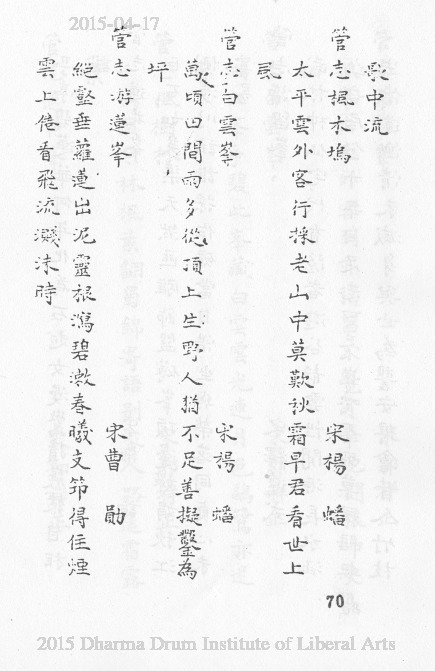 2015-04-17
歌中流
營志楓木塢 宋楊 蟠
太平雲外客行採老山中莫歎秋霜早君看世上
風
營志白雲峯 宋楊 蟠
萬頃凹間雨多從頂上生野人猶不足善擬鑿為
坪
營志游蓮峯 宋曹 勛
絕壑垂蘿蓮出泥靈根瀉碧漱春曦支筇得住煙
雲上倦看飛流濺沫時
70
2015 Dharma Drum Institute of Liberal Arts